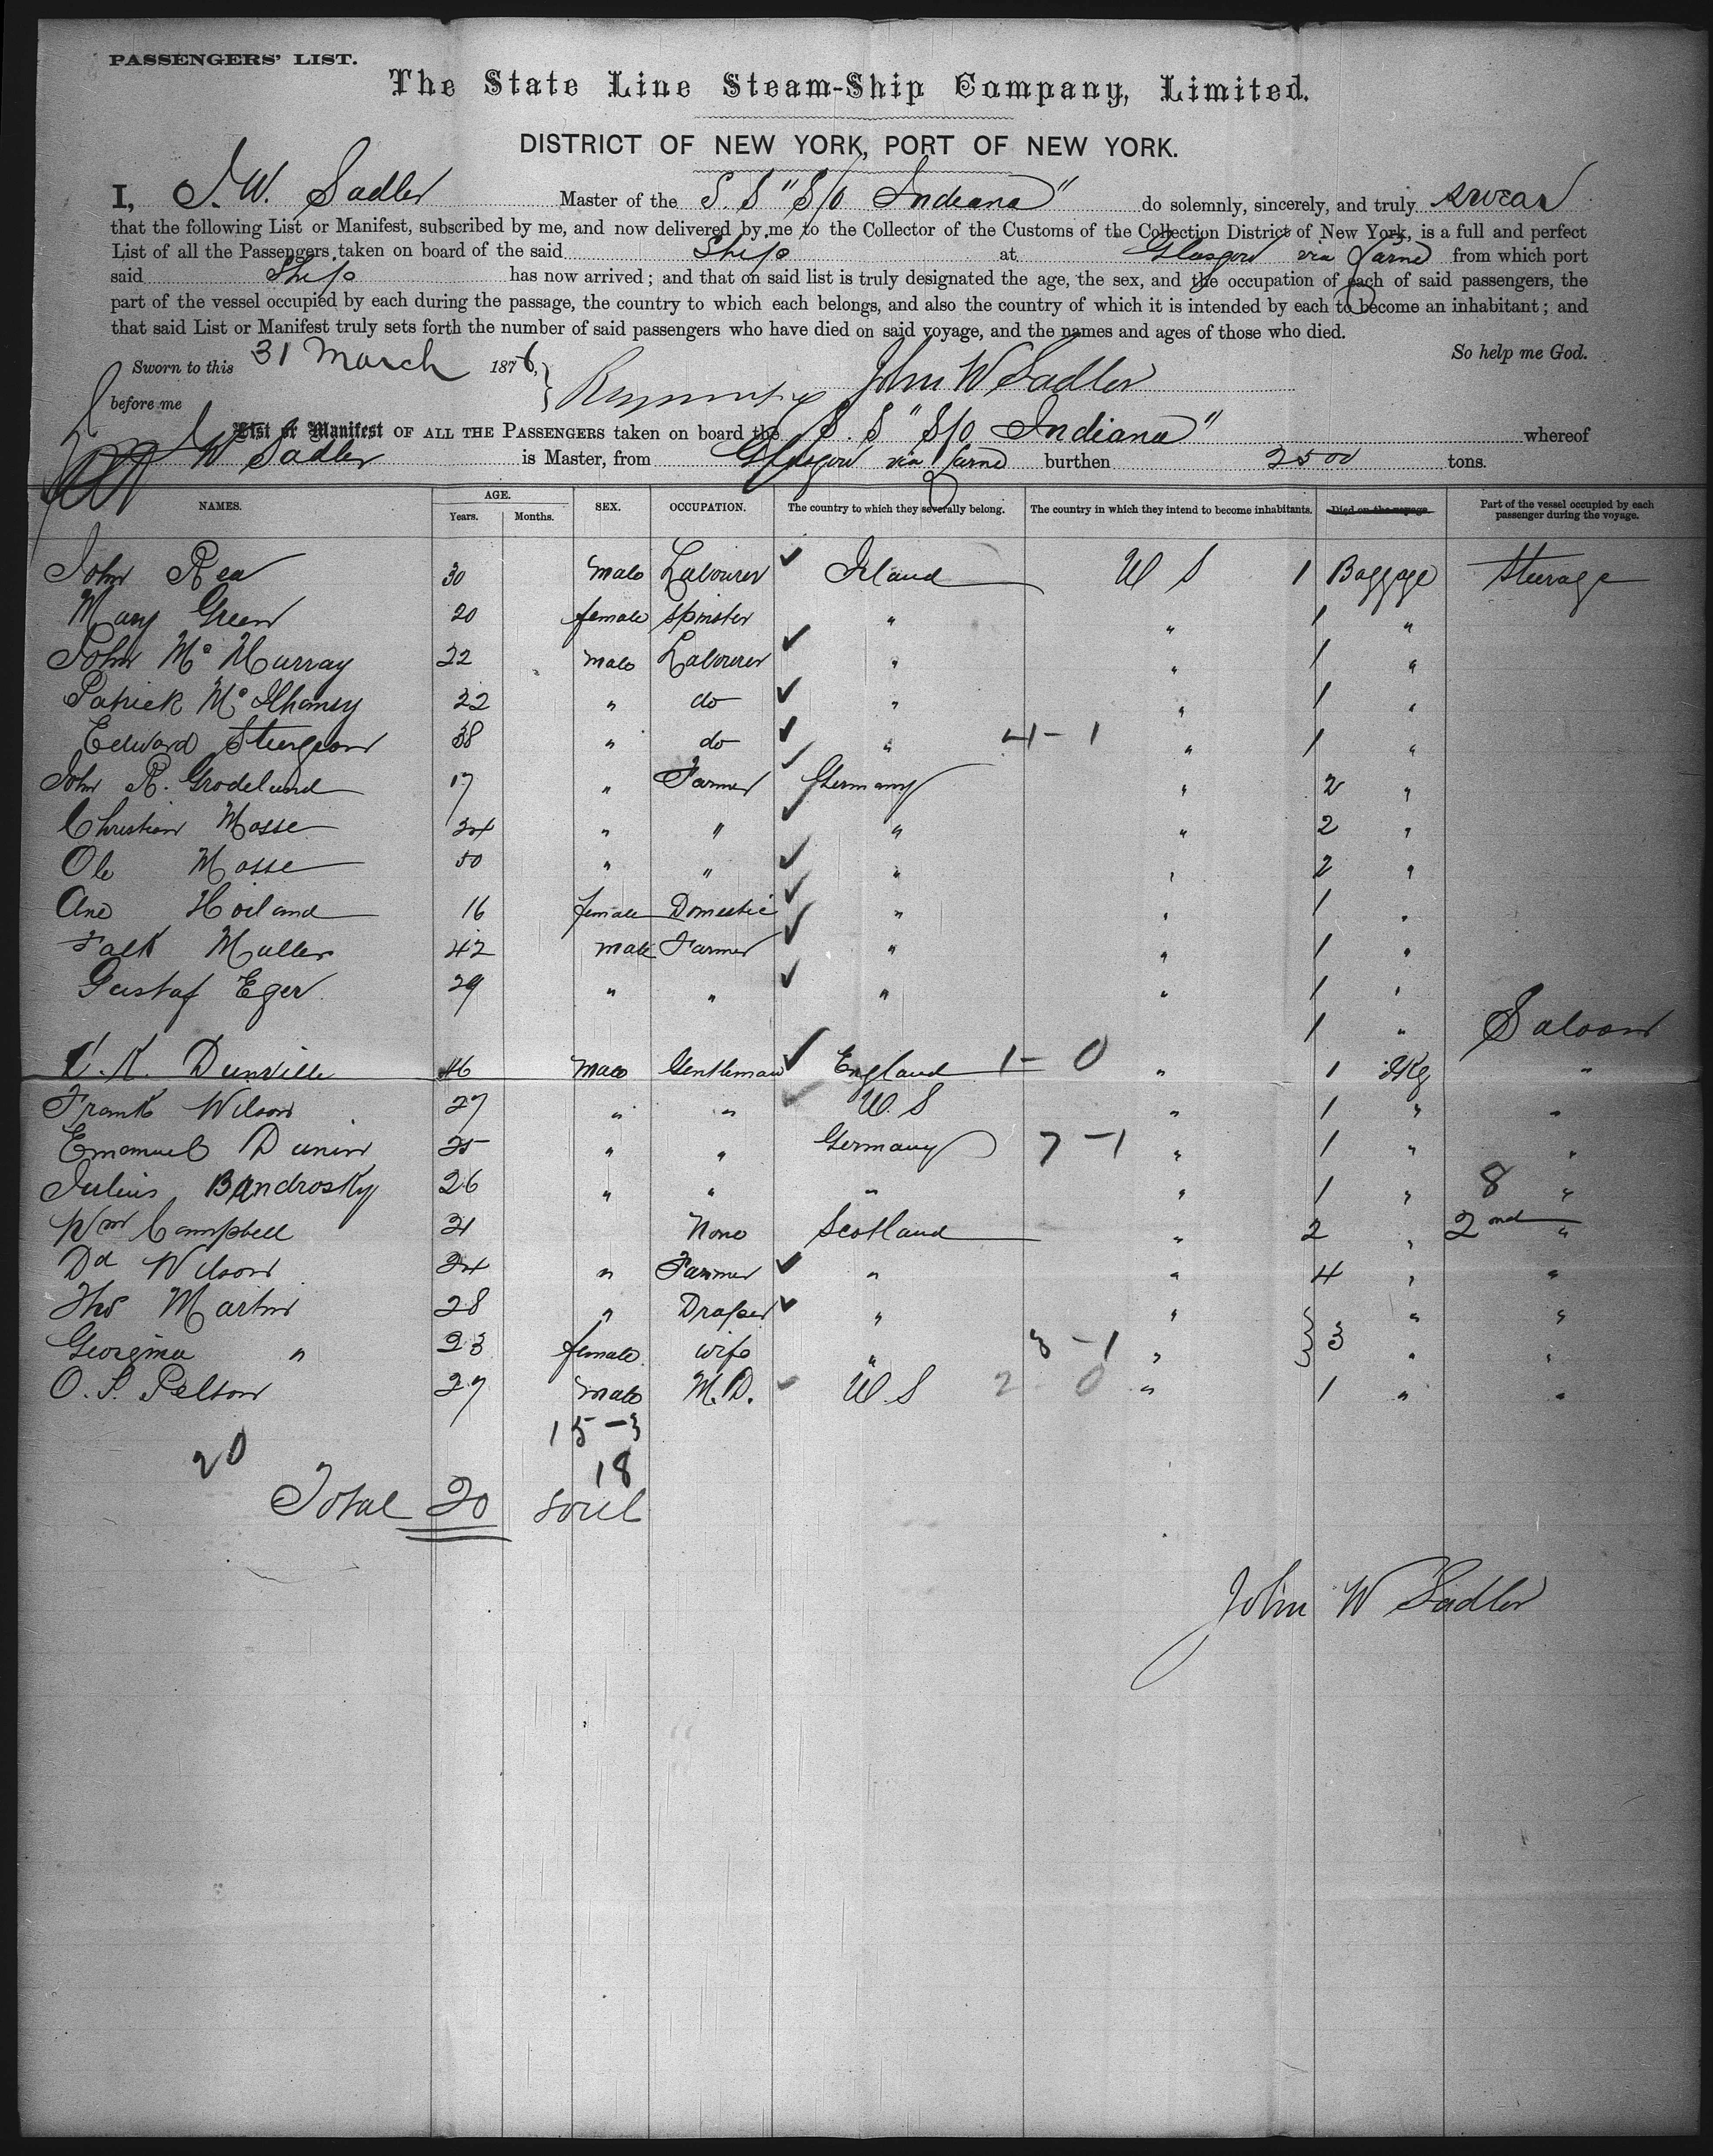 PASSENGERS' LIST.
The State Line Steam-Ship Company, Limited.
DISTRICT OF NEW YORK, PORT OF NEW YORK.
I, J. W. Sadler Master of the S. S "S/o Indiana" do solemnly, sincerely, and truly swear
that the following List or Manifest, subscribed by me, and now delivered by me to the Collector of the Customs of the Collection District of New York, is a full and perfect
List of all the Passengers taken on board of the said Ship at Glasgow via Larne from which port
said Ship has now arrived; and that on said list is truly designated the age, the sex, and the occupation of each of said passengers, the
part of the vessel occupied by each during the passage, the country to which each belongs, and also the country of which it is intended by each to become an inhabitant; and
that said List or Manifest truly sets forth the number of said passengers who have died on said voyage, and the names and ages of those who died.
So help me God.
Sworn to this 31 March 1876, John W Sadler
before me
List or Manifest OF ALL THE PASSENGERS taken on board the S. S "S/o Indiana" whereof
W Sadler is Master, from Glasgow via Larne burthen 2500 tons.
NAMES. AGE. Years. Months. SEX. OCCUPATION. The country to which they severally belong. The country in which they intend to become inhabitants. Died on the voyage. Part of the vessel occupied by each passenger during the voyage.
John Rea 30 Male Labourer ✓ Irland U S 1 Baggage Steerage
Mary Green 20 female Spinster " " 1 "
John Mc Murray 22 male Labourer ✓ " " 1 "
Patrick Mc 22 " do ✓ " " 1 "
Edward Sturgeon 38 " do ✓ " 4-1 " 1 "
John R. Grodelund 17 " Farmer ✓ Germany " 2 "
Christian Mosse 24 " " ✓ " " 2 "
Ole Mosse 50 " " ✓ " " 2 "
Ane Hoiland 16 female Domestic ✓ " " 1 "
Falk Muller 42 male Farmer ✓ " " 1 "
Gustaf Eger 29 " " ✓ " " 1 "
1 " Saloon
Dunville 46 Male Gentleman ✓ England 1-0 " 1 "
Frank Wilson 27 " " ✓ U. S " 1 " "
Emanuel Dunin 25 " " Germany 7-1 " 1 " "
Julius Bandrosky 26 " " " " 1 " 8 "
Wm Campbell 21 None Scotland " 2 " 2nd "
Dd Wilson 24 " Farmer ✓ " " 4 " "
Tho Martin 28 " Draper ✓ " " " "
Georgina " 23 female wife " 3-1 " 3 " "
O. S. Pelton 27 Male M.D. ✓ U. S 2 0 " 1 " "
15-3
20 18
Total 20 Soul
John W Sadler